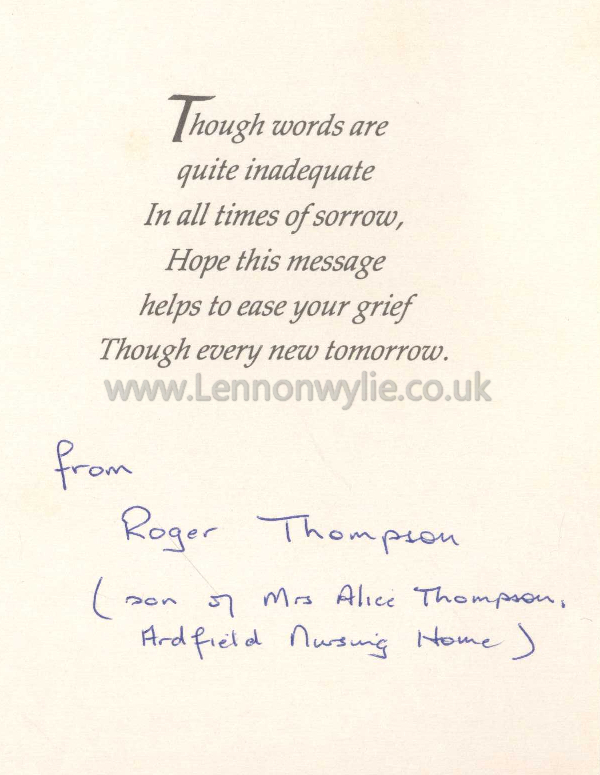 Though words are
quite inadequate
In all times of sorrow,
Hope this message
helps to ease your grief
Though every new tomorrow.
www.Lennonwylie.co.uk
from
Roger Thompson
(son of Mrs Alice Thompson,
Ardfield Nursing Home)